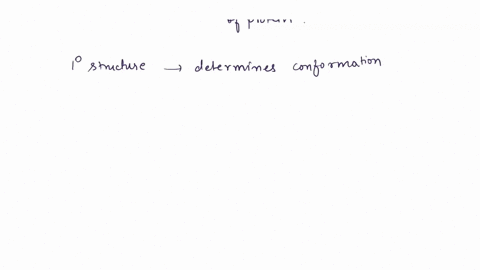 of protein.
1° structure → determines conformation